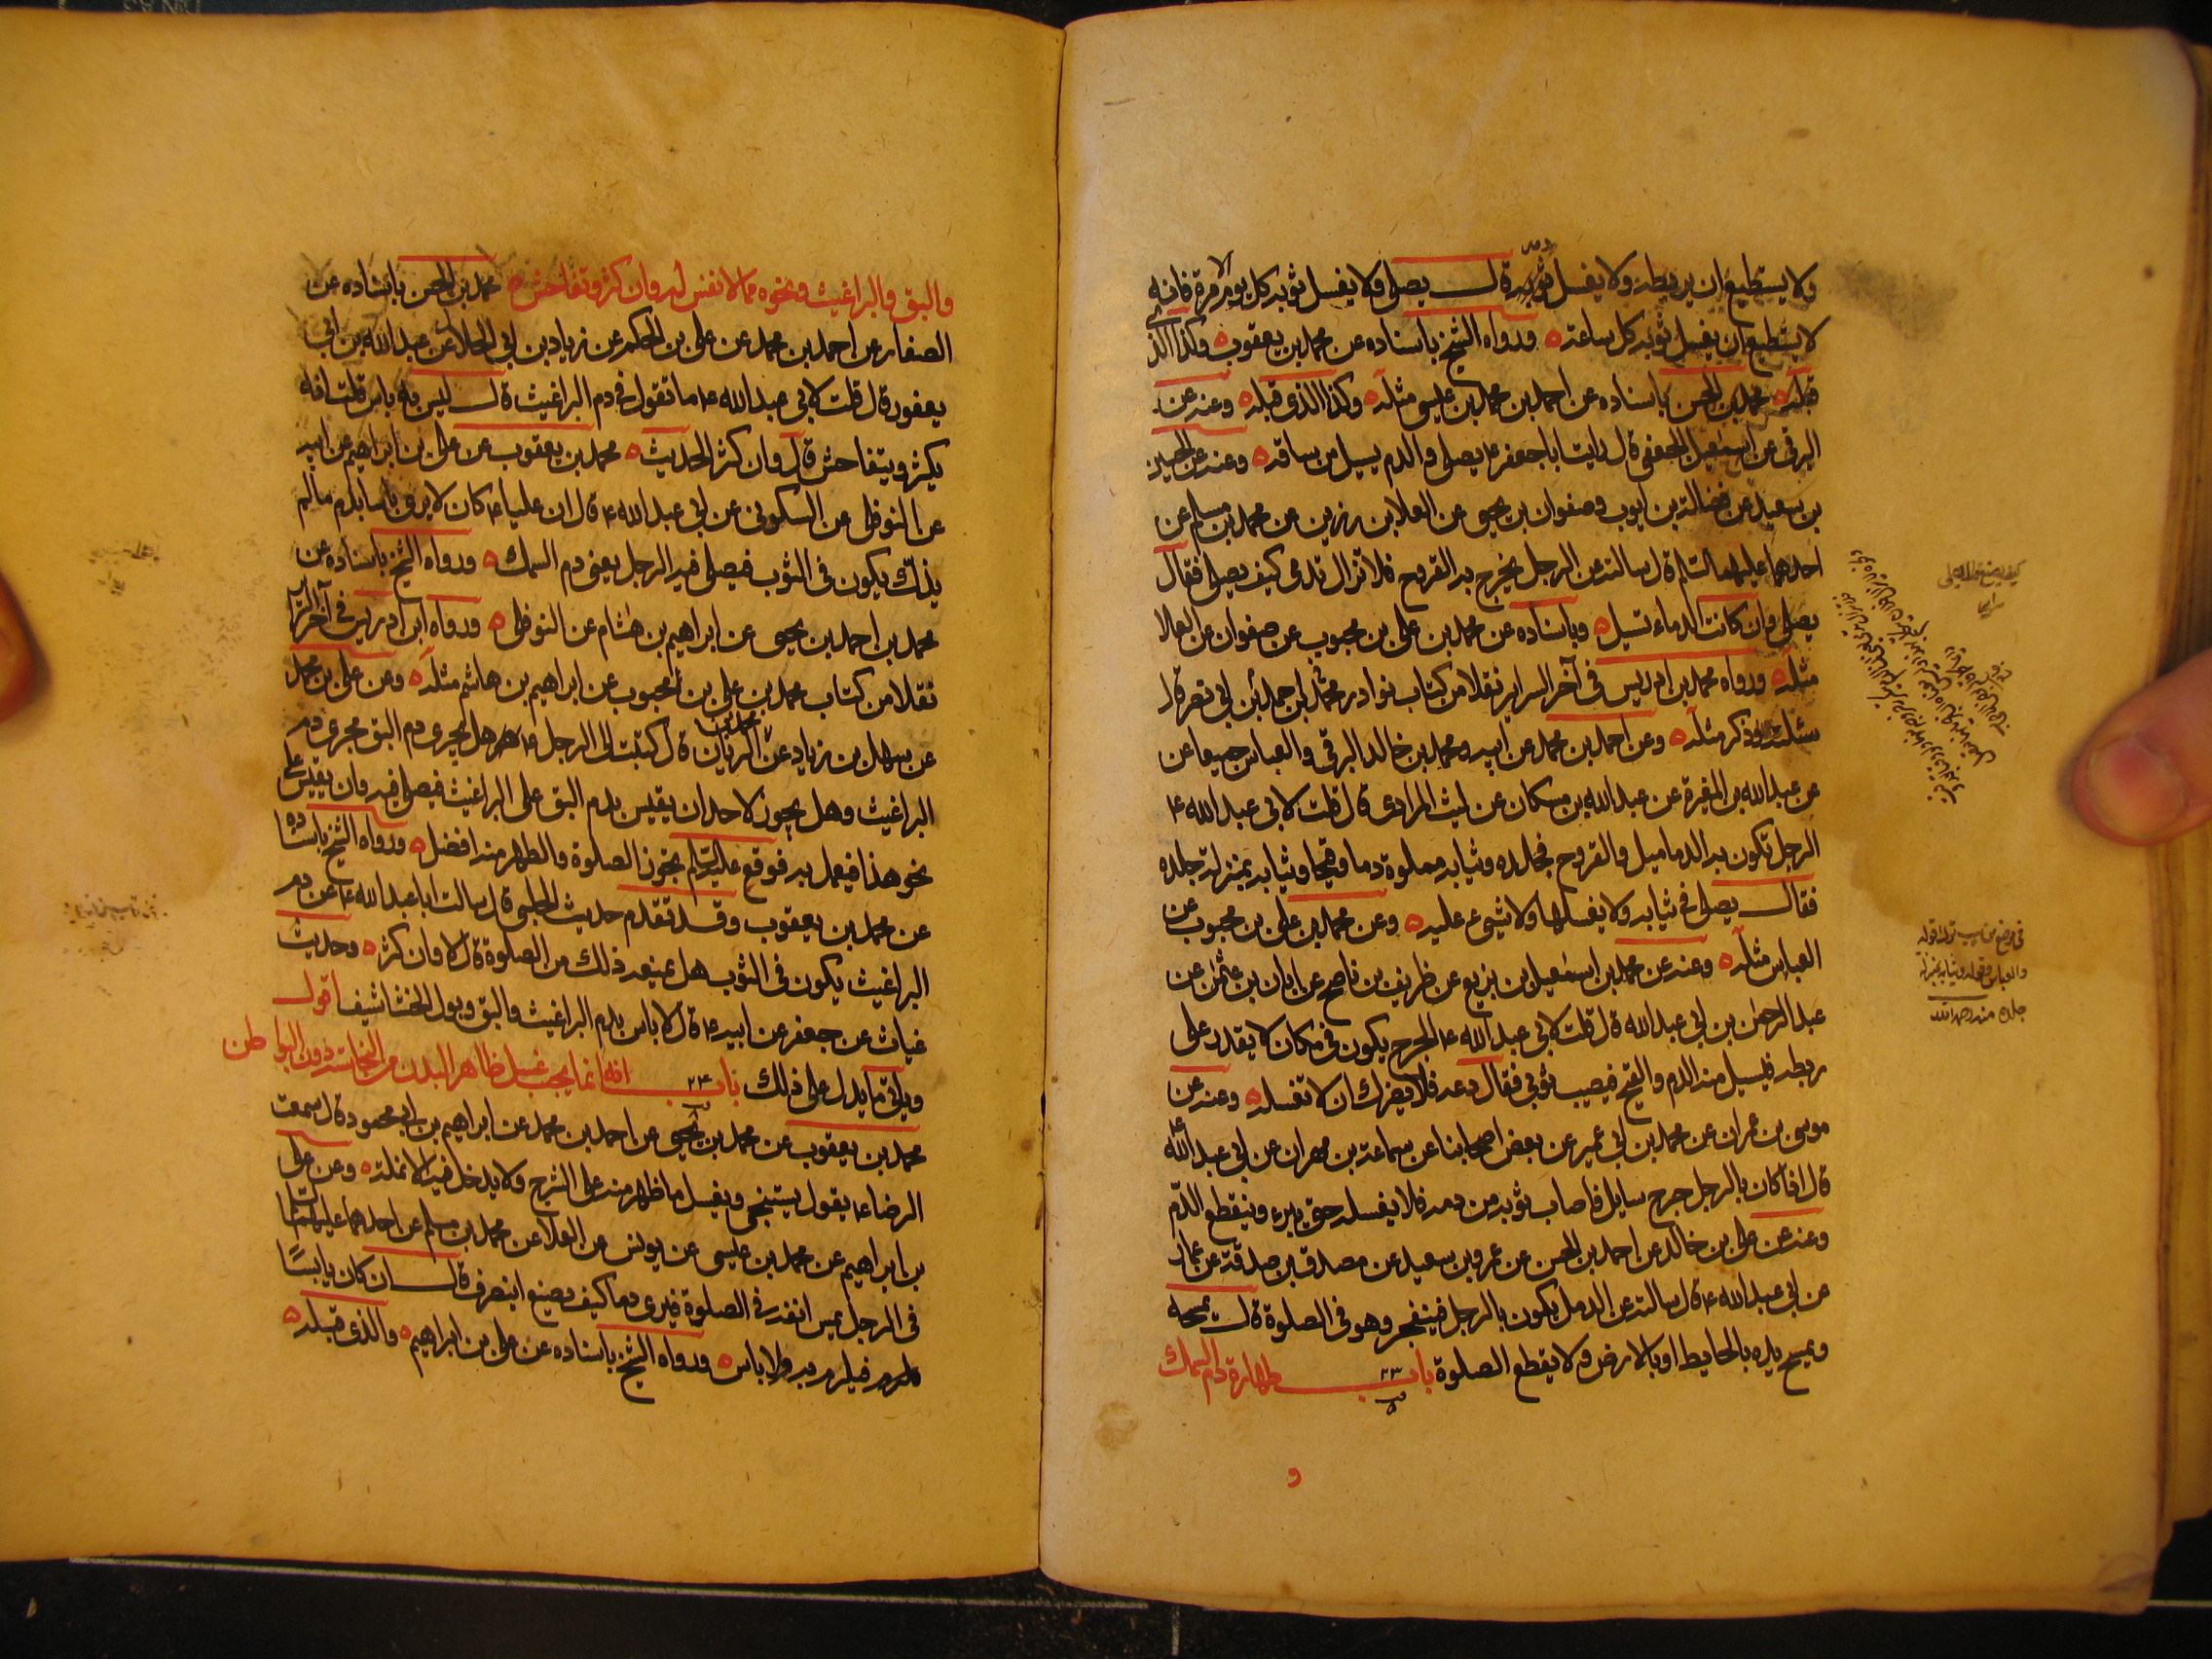 ولا يستطيع ان يربطه ولا يغسل ثوبه دمه قال يصلى ولا يغسل ثوبه كل يوم الا مرة فانه
لا يستطيع ان يغسل ثوبه كل ساعة ه ورواه الشيخ باسناده عن محمد بن يعقوب ه وكذا الذى
قبله ه محمد بن الحسن باسناده عن احمد بن محمد بن عيسى مثله ه وكذا الذى قبله ه وعنه عن
البرقى عن اسمعيل الجعفى قال رايت ابا جعفر ع يصلى والدم يسيل من ساقه ه وعنه عن الحسين
بن سعيد عن فضالة بن ايوب وصفوان بن يحيى عن العلا بن رزين عن محمد بن مسلم عن
احدهما عليهما السلم قال سالته عن الرجل يخرج به القروح فلا تزال تدمى كيف يصلى فقال
يصلى وان كانت الدماء تسيل ه وباسناده عن محمد بن على بن محبوب عن صفوان عن العلا
مثله ه ورواه محمد بن ادريس فى آخر السراير نقلا من كتاب نوادر محمد بن احمد بن ابى نصر قال
سئلته وذكر مثله ه وعن احمد بن محمد عن ابيه ومحمد بن خالد البرقى والعباس جميعا عن
عن عبدالله بن المغيرة عن عبدالله بن مسكان عن ليث المرادى قال قلت لابى عبدالله ع
الرجل تكون به الدماميل والقروح فجلده وثيابه مملوة دما وقيحا وثيابه بمنزلة جلده
فقال يصلى فى ثيابه ولا يغسلها ولا شىء عليه ه وعن محمد بن على بن محبوب عن
العباس مثله ه وعنه عن محمد بن اسمعيل بن بزيع عن ظريف بن ناصح عن ابان بن عثمن عن
عبد الرحمن بن ابى عبدالله قال قلت لابى عبدالله ع الجرح يكون فى مكان لا يقدر على
ربطه فيسيل منه الدم والقيح فيصيب ثوبى فقال دعه فلا يضرك ان لا تغسله ه وعنه عن
موسى بن عمران عن محمد بن ابى عمير عن بعض اصحابنا عن سماعة بن مهران عن ابى عبدالله ع
قال اذا كان بالرجل جرح سايل فاصاب ثوبه من دمه فلا يغسله حتى يابرء وينقطع الدم
وعنه عن على بن خالد عن احمد بن الحسن عن عمرو بن سعيد عن مصدق بن صدقة عن عمار
عن ابى عبدالله ع قال سالته عن الدمل يكون بالرجل فينفجر وهو فى الصلوة قال يمسحه
ويمسح يده بالحايط او بالارض ولا يقطع الصلوة باب ٢٣ طهارة دم السمك
و
كيف يصنع
فى موضع
والعباس وقوله وثيابه بمنزلة
جلده منه
والبق والبراغيث ونحوه مما لا نفس له وان كثر وتفاحش ه محمد بن الحسن باسناده عن
الصفار عن احمد بن محمد عن على بن الحكم عن زياد بن ابى الحلال عن عبدالله بن ابى
يعفور قال قلت لابى عبدالله ع ما تقول فى دم البراغيث قال ليس به باس قلت انه
يكثر ويتفاحش قال وان كثر الحديث ه محمد بن يعقوب عن على بن ابراهيم عن ابيه
عن النوفلى عن السكونى عن ابى عبدالله ع قال ان عليا ع كان لا يرى باسا بدم ما لم
يذك يكون فى الثوب فيصلى فيه الرجل يعنى دم السمك ه ورواه الشيخ باسناده عن
محمد بن احمد بن يحيى عن ابراهيم بن هشام عن النوفلى ه ورواه ابن ادريس فى آخر السراير
نقلا من كتاب محمد بن على بن محبوب عن ابراهيم بن هاشم مثله ه وعن على بن محمد
عن سهل بن زياد عن محمد بن الريان قال كتبت الى الرجل ع هل يجرى دم البق مجرى دم
البراغيث وهل يجوز لاحد ان يقيس بدم البق على البراغيث فيصلى فيه وان يقيس على
نحو هذا فيعمل به فوقع عليه السلم تجوز الصلوة والطهر منه افضل ه ورواه الشيخ باسناده
عن محمد بن يعقوب وقد تقدم حديث الحلبى قال سالت ابا عبدالله ع عن دم
البراغيث يكون فى الثوب هل يمنعه ذلك من الصلوة قال لا وان كثر ه وحديث
غياث عن جعفر عن ابيه ع قال لا باس بدم البراغيث والبق وبول الخشاشيف اقول
وياتى ما يدل على ذلك باب ٢٤ انه انما يجب غسل ظاهر البدن من النجاسة دون البواطن
محمد بن يعقوب عن محمد بن يحيى عن احمد بن محمد عن ابراهيم بن ابى محمود قال سمعت
الرضا ع يقول يستنجى ويغسل ما ظهر منه على الشرج ولا يدخل فيه الانملة ه وعن على
بن ابراهيم عن محمد بن عيسى عن يونس عن العلا عن محمد بن مسلم عن احدهما عليهما السلم
فى الرجل يمس انفه فى الصلوة فيرى دما كيف يصنع اينصرف قال ان كان يابسا
فليرم به ولا باس ه ورواه الشيخ باسناده عن على بن ابراهيم ه والذى قبله ه